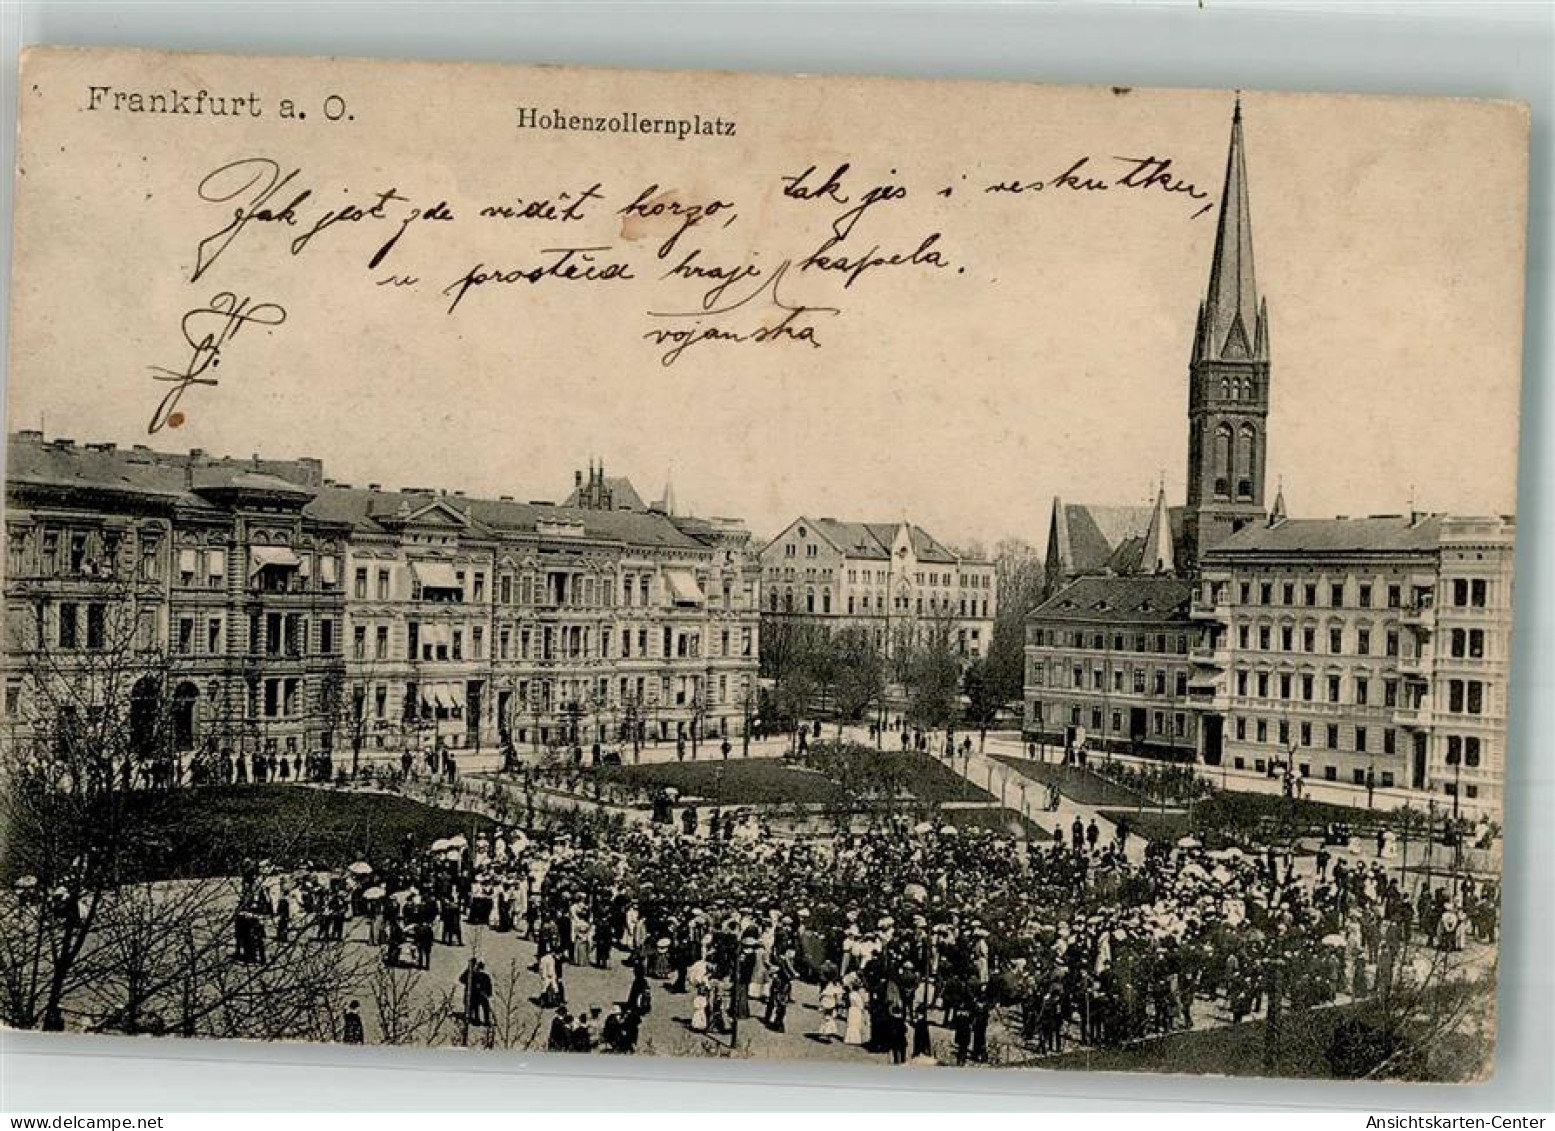 Frankfurt a. O.
Hohenzollernplatz
Jak jest zde vidět korzo, tak jes i veskutku,
u prostřed hraje kapela.
vojanska
www.delcampe.net
Ansichtskarten-Center